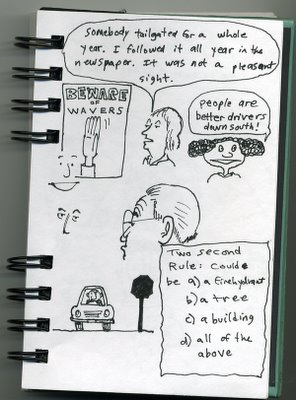 somebody tailgated for a whole
year. I followed it all year in the
newspaper. It was not a pleasant
sight.
BEWARE
OF
WAVERS
people are
better drivers
down south!
Two second
Rule: Could
be a) a firehydrant
b) a tree
c) a building
d) all of the
above